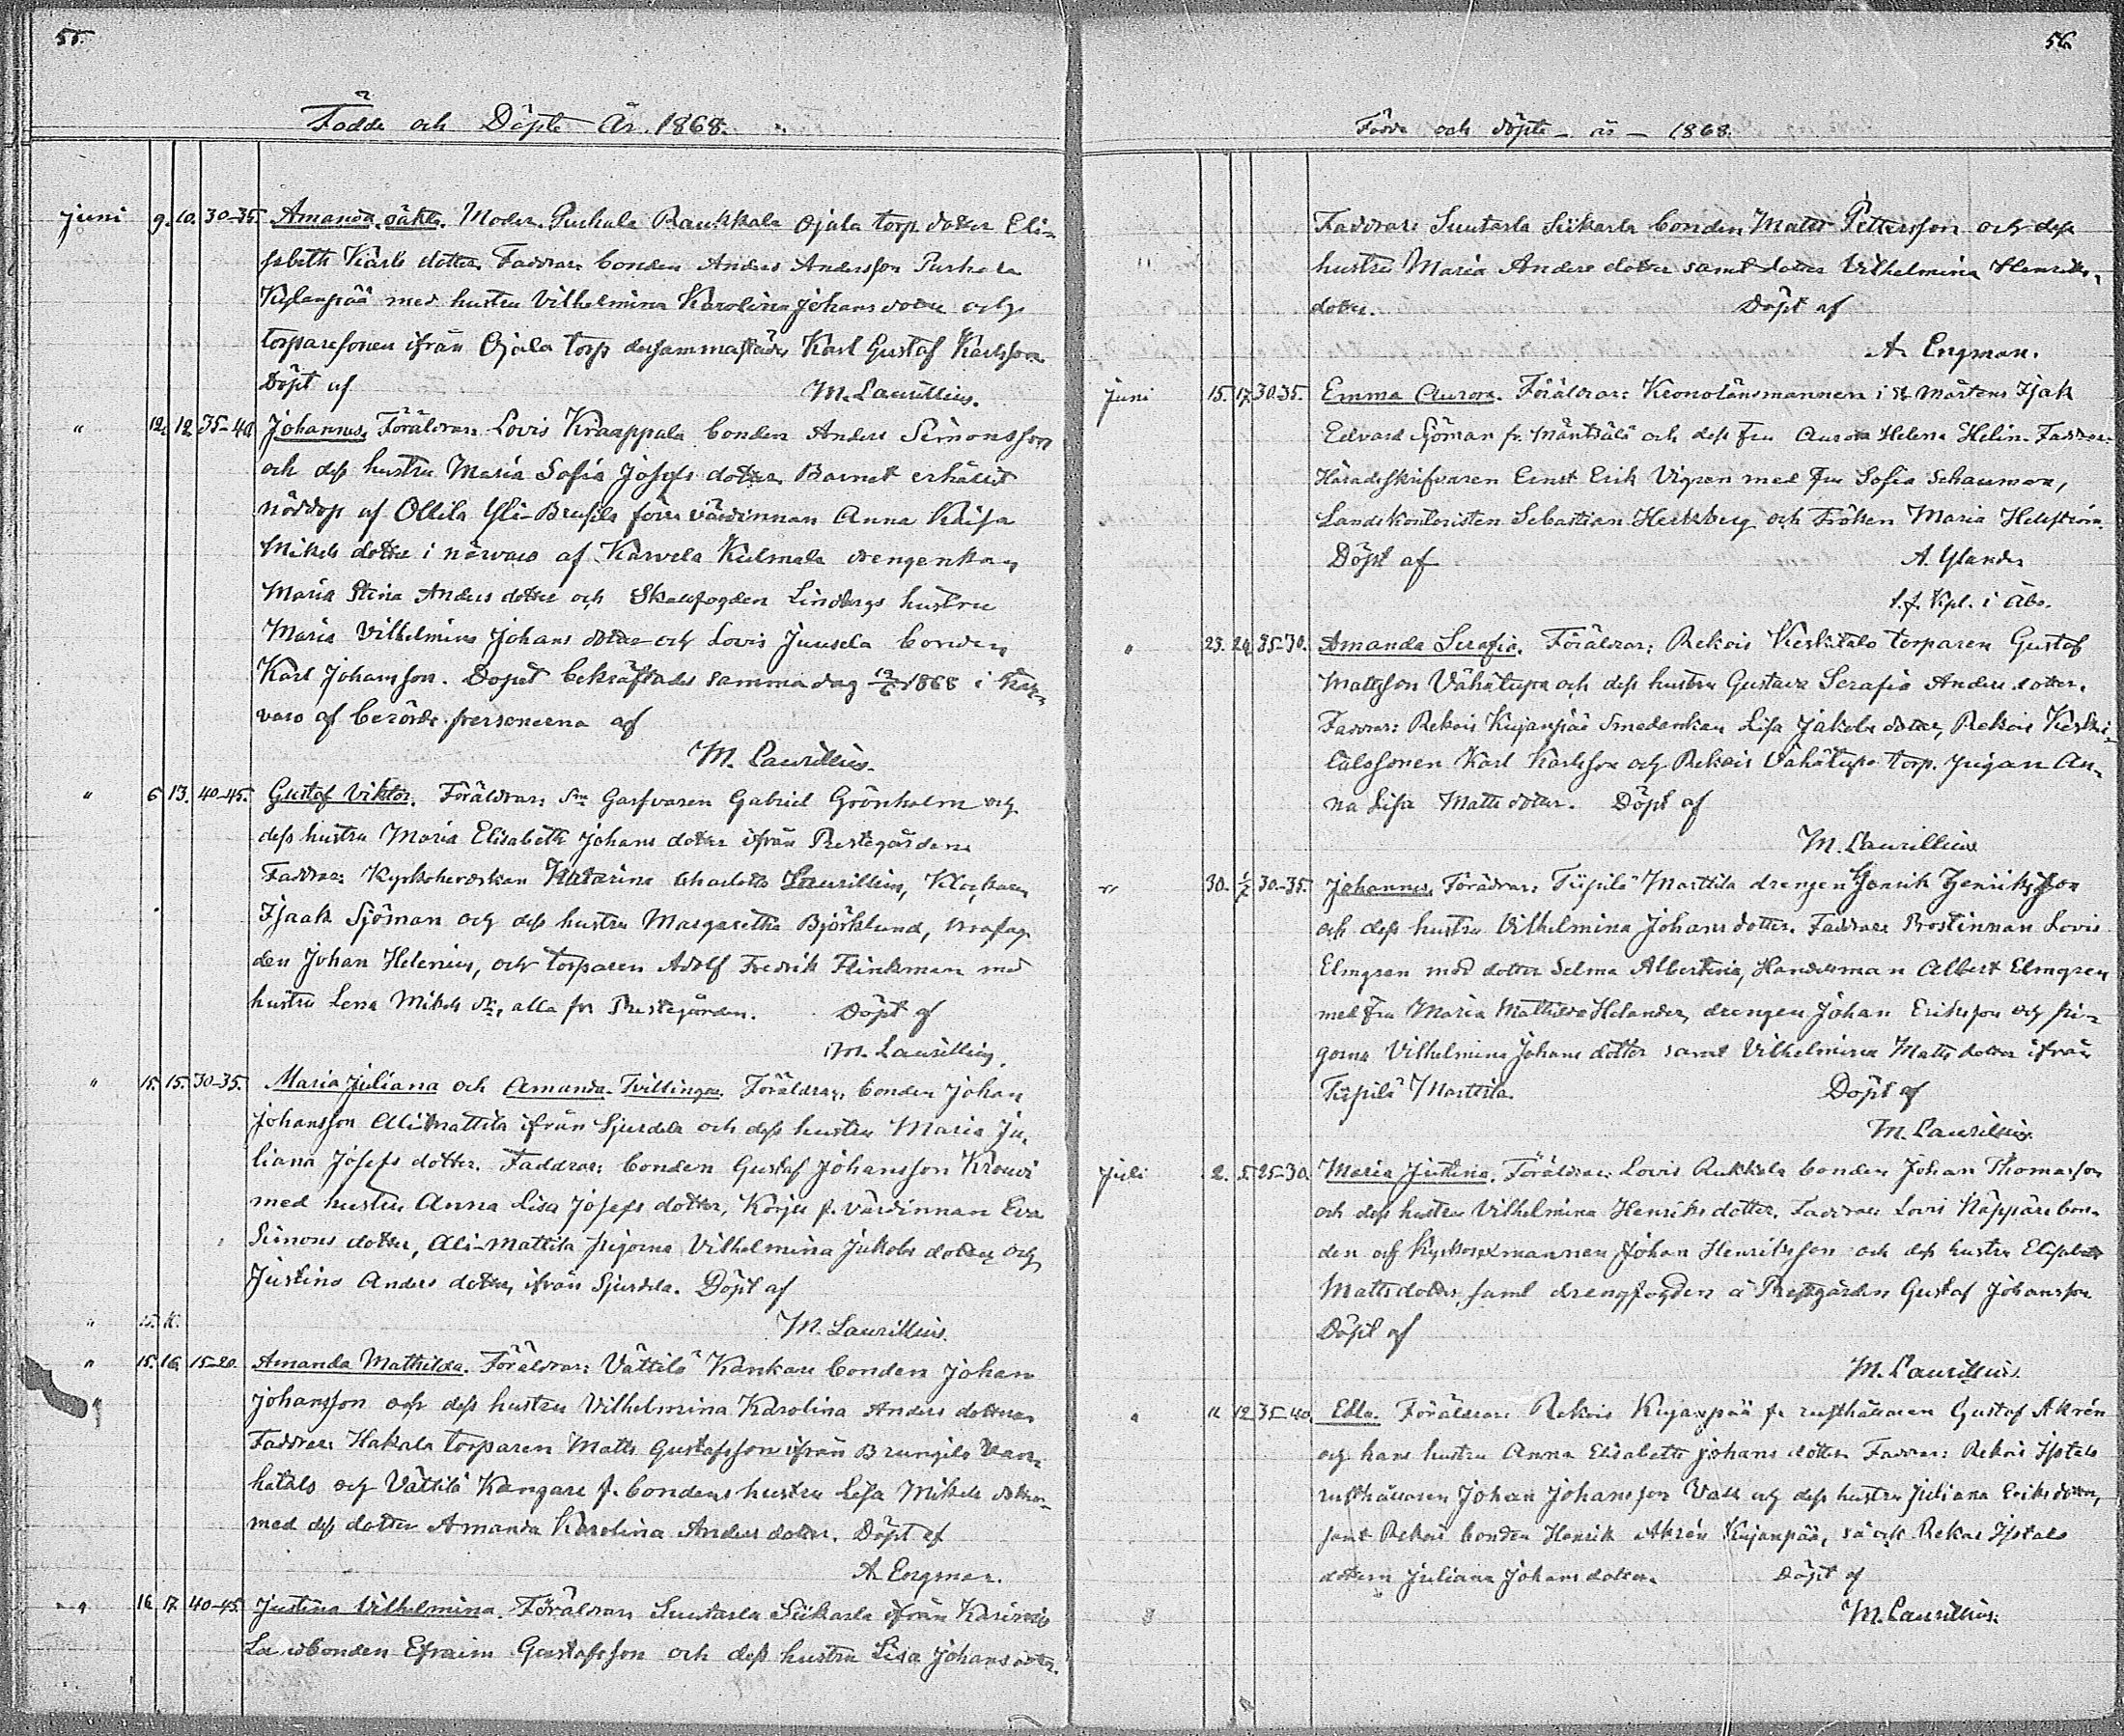 55.
Födde och Döpte År 1868.
Juni 9. 10. 30-35. Amanda, oäkta. Moder: Purhala Raukkala Ojala torp dotter Eli-
sabeth Karls dotter. Faddrar: bonden Anders Andersson Purhala
Kylänpää med hustru Vilhelmina Karolina Johans dotter och
torparesonen ifrån Ojala torp dersammastädes Karl Gustaf Karlsson
Döpt af M. Laurillius.
" 12. 12. 35-40. Johannes, Föräldrar: Lovis Kraappala bonden Anders Simonsson
och dess hustru Maria Sofia Josefs dotter. Barnet erhållit
nöddop af Ollila Yli- förra värdinnan Anna Kaisa
Mikels dotter i närvaro af Karvela Kulmala drengenkan
Maria Stina Anders dotter och Skallfogden Lindbergs hustru
Maria Vilhelmina Johans dotter och Lovis Juusela bonden
Karl Johansson. Dopet bekräftades samma dag 12/6 1868 i när-
varo af berörde personerna af
M. Laurillius.
" 6 13. 40-45. Gustaf Viktor. Föräldrar: Sn Garfvaren Gabriel Grönholm och
dess hustru Maria Elisabeth Johans dotter ifrån Prestegården
Faddrar: Kyrkoherdskan Katarina Charlotta Laurillius, Klockaren
Isaak Sjöman och dess hustru Margaretha Björklund,
den Johan Helenius, och torparen Adolf Fredrik Flinkman med
hustru Lena Mikels dr, alla fr Prestegården. Döpt af
M. Laurillius.
" 15. 15. 30-35. Maria Juliana och Amanda. Tvillingar. Föräldrar: bonden Johan
Johansson Alimattila ifrån Sjurdela och dess hustru Maria Ju-
liana Josefs dotter. Faddrar: bonden Gustaf Johansson Krouvi
med hustru Anna Lisa Josefs dotter, Korju f. värdinnan Eva
Simons dotter, Ali-Mattila pigorna Vilhelmina Jakobs dotter och
Justina Anders dotter, ifrån Sjurdela. Döpt af
M. Laurillius.
" 15. 16. 15-20. Amanda Mathilda. Föräldrar: Vättilä Kankare bonden Johan
Johansson och dess hustru Vilhelmina Karolina Anders dotter
Faddrar: Hakala torparen Matts Gustafsson ifrån Brungila Van-
hatalo och Vättilä Kangare f. bondens hustru Lisa Mikels dotter
med dess dotter Amanda Karolina Anders dotter. Döpt af
A Engman.
" 16. 17. 40-45. Justina Vilhelmina. Föräldrar: Suutarla Siikarla ifrån
Landbonden Efraim Gustafsson och dess hustru Lisa Johans dotter.
56.
Födde och döpte - år - 1868.
Faddrar: Suutarla Siikarla bonden Matts Pettersson och dess
hustru Maria Anders dotter samt dotter Vilhelmina Henriks-
dotter. Döpt af
A Engman.
Juni 15. 17. 30-35. Emma Aurora. Föräldrar: Kronolänsmannen i St Mårtens Isak
Edvard Sjöman fr. Mäntsälä och dess Fru Aurora Helena Helin. Faddrar:
Häradsskrifvaren Ernst Erik Vigren med Fru Sofia Schauman,
Landskontoristen Sebastian Hertzberg och Fröken Maria Hellström.
Döpt af A. Ylander
s.f. Kpl. i Åbo.
" 23. 24. 25-30. Amanda Serafia. Föräldrar: Rekois Keskitalo torparen Gustaf
Mattsson Vähätupa och dess hustru Gustava Serafia Anders dotter.
Faddrar: Rekois Kujanpää Smedenkan Lisa Jakobs dotter, Rekois Keski-
talssonen Karl Karlsson och Rekois Vähätupa torp. pigan An-
na Lisa Matts dotter. Döpt af
M. Laurillius
" 30. 1/7 30-35. Johannes, Föräldrar: Tiipilä Marttila drengen Henrik Henriksson
och dess hustru Vilhelmina Johans dotter. Faddrar: Prostinnan Lovis
Elmgren med dotter Selma Albertina, Handelsman Albert Elmgren
med Fru Maria Mathilda Helander, drengen Johan Eriksson och pi-
gorna Vilhelmina Johans dotter samt Vilhelmina Matts dotter ifrån
Tiipilä Marttila. Döpt af
M. Laurillius
Juli 2. 5. 25-30. Maria Justina. Föräldrar: Lovis Rukkila bonden Johan Thomasson
och dess hustru Vilhelmina Henriks dotter, Faddrar: Lovis Näppäre bon-
den och Kyrkosexmannen Johan Henriksson och dess hustru Elisabet
Mattsdotter, samt drengfogden å Prestgården Gustaf Johansson
Döpt af
M. Laurillius.
" 11. 12. 35-40. Edla. Föräldrar: Rekois Kujanpää f. rusthållaren Gustaf Akrén
och hans hustru Anna Elisabeth Johans dotter. Faddrar: Rekois Isotalo
rusthållaren Johan Johansson Vall och dess hustru Juliana Eriks dotter,
samt Rekois bonden Henrik Akrén Kujanpää, så ock Rekois Isotalo
dottern Juliana Johans dotter. Döpt af
M. Laurillius.